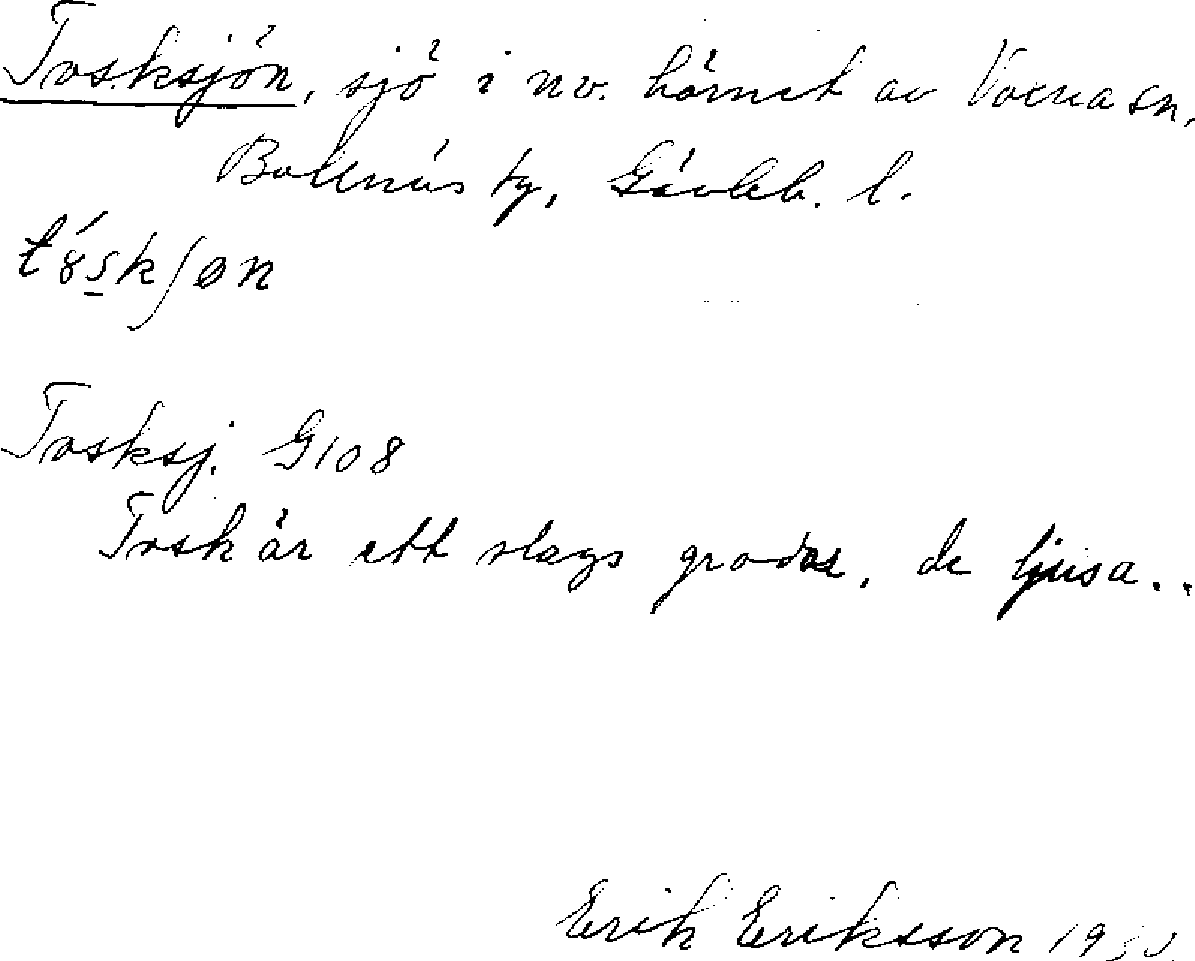 Tosksjön, sjö i nv. hörnet av Voxna sn,
Bollnäs tg, Gävleb. l.
Tosksj. G108
Tosk är ett slags grodor, de ljusa..
Erik Eriksson